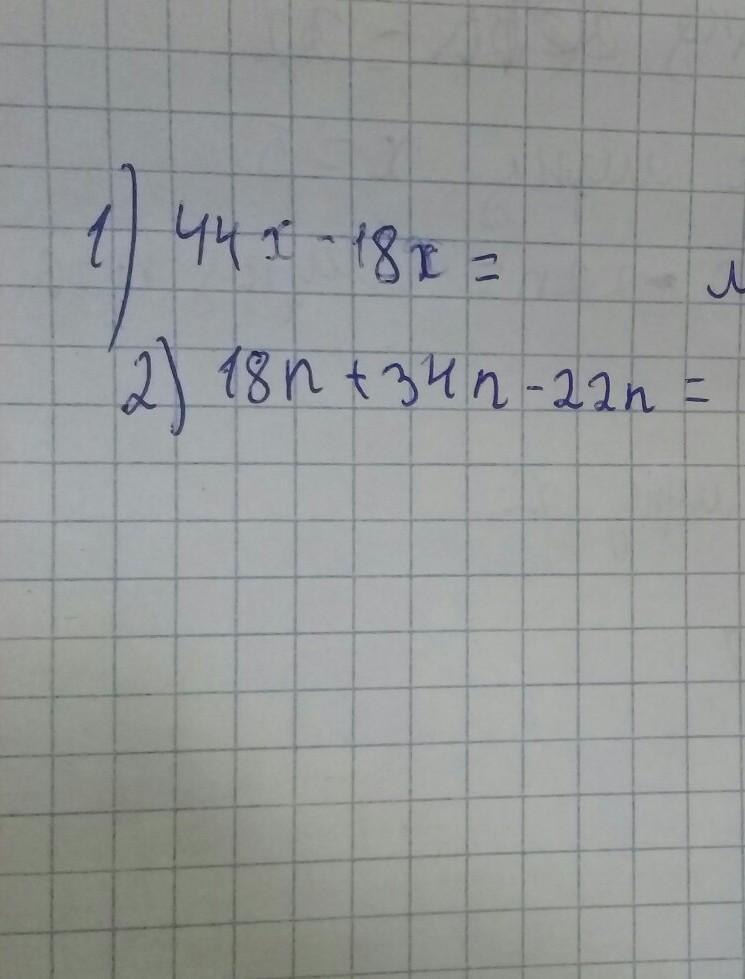 1) 44x - 18x =
2) 18n + 34n - 22n =